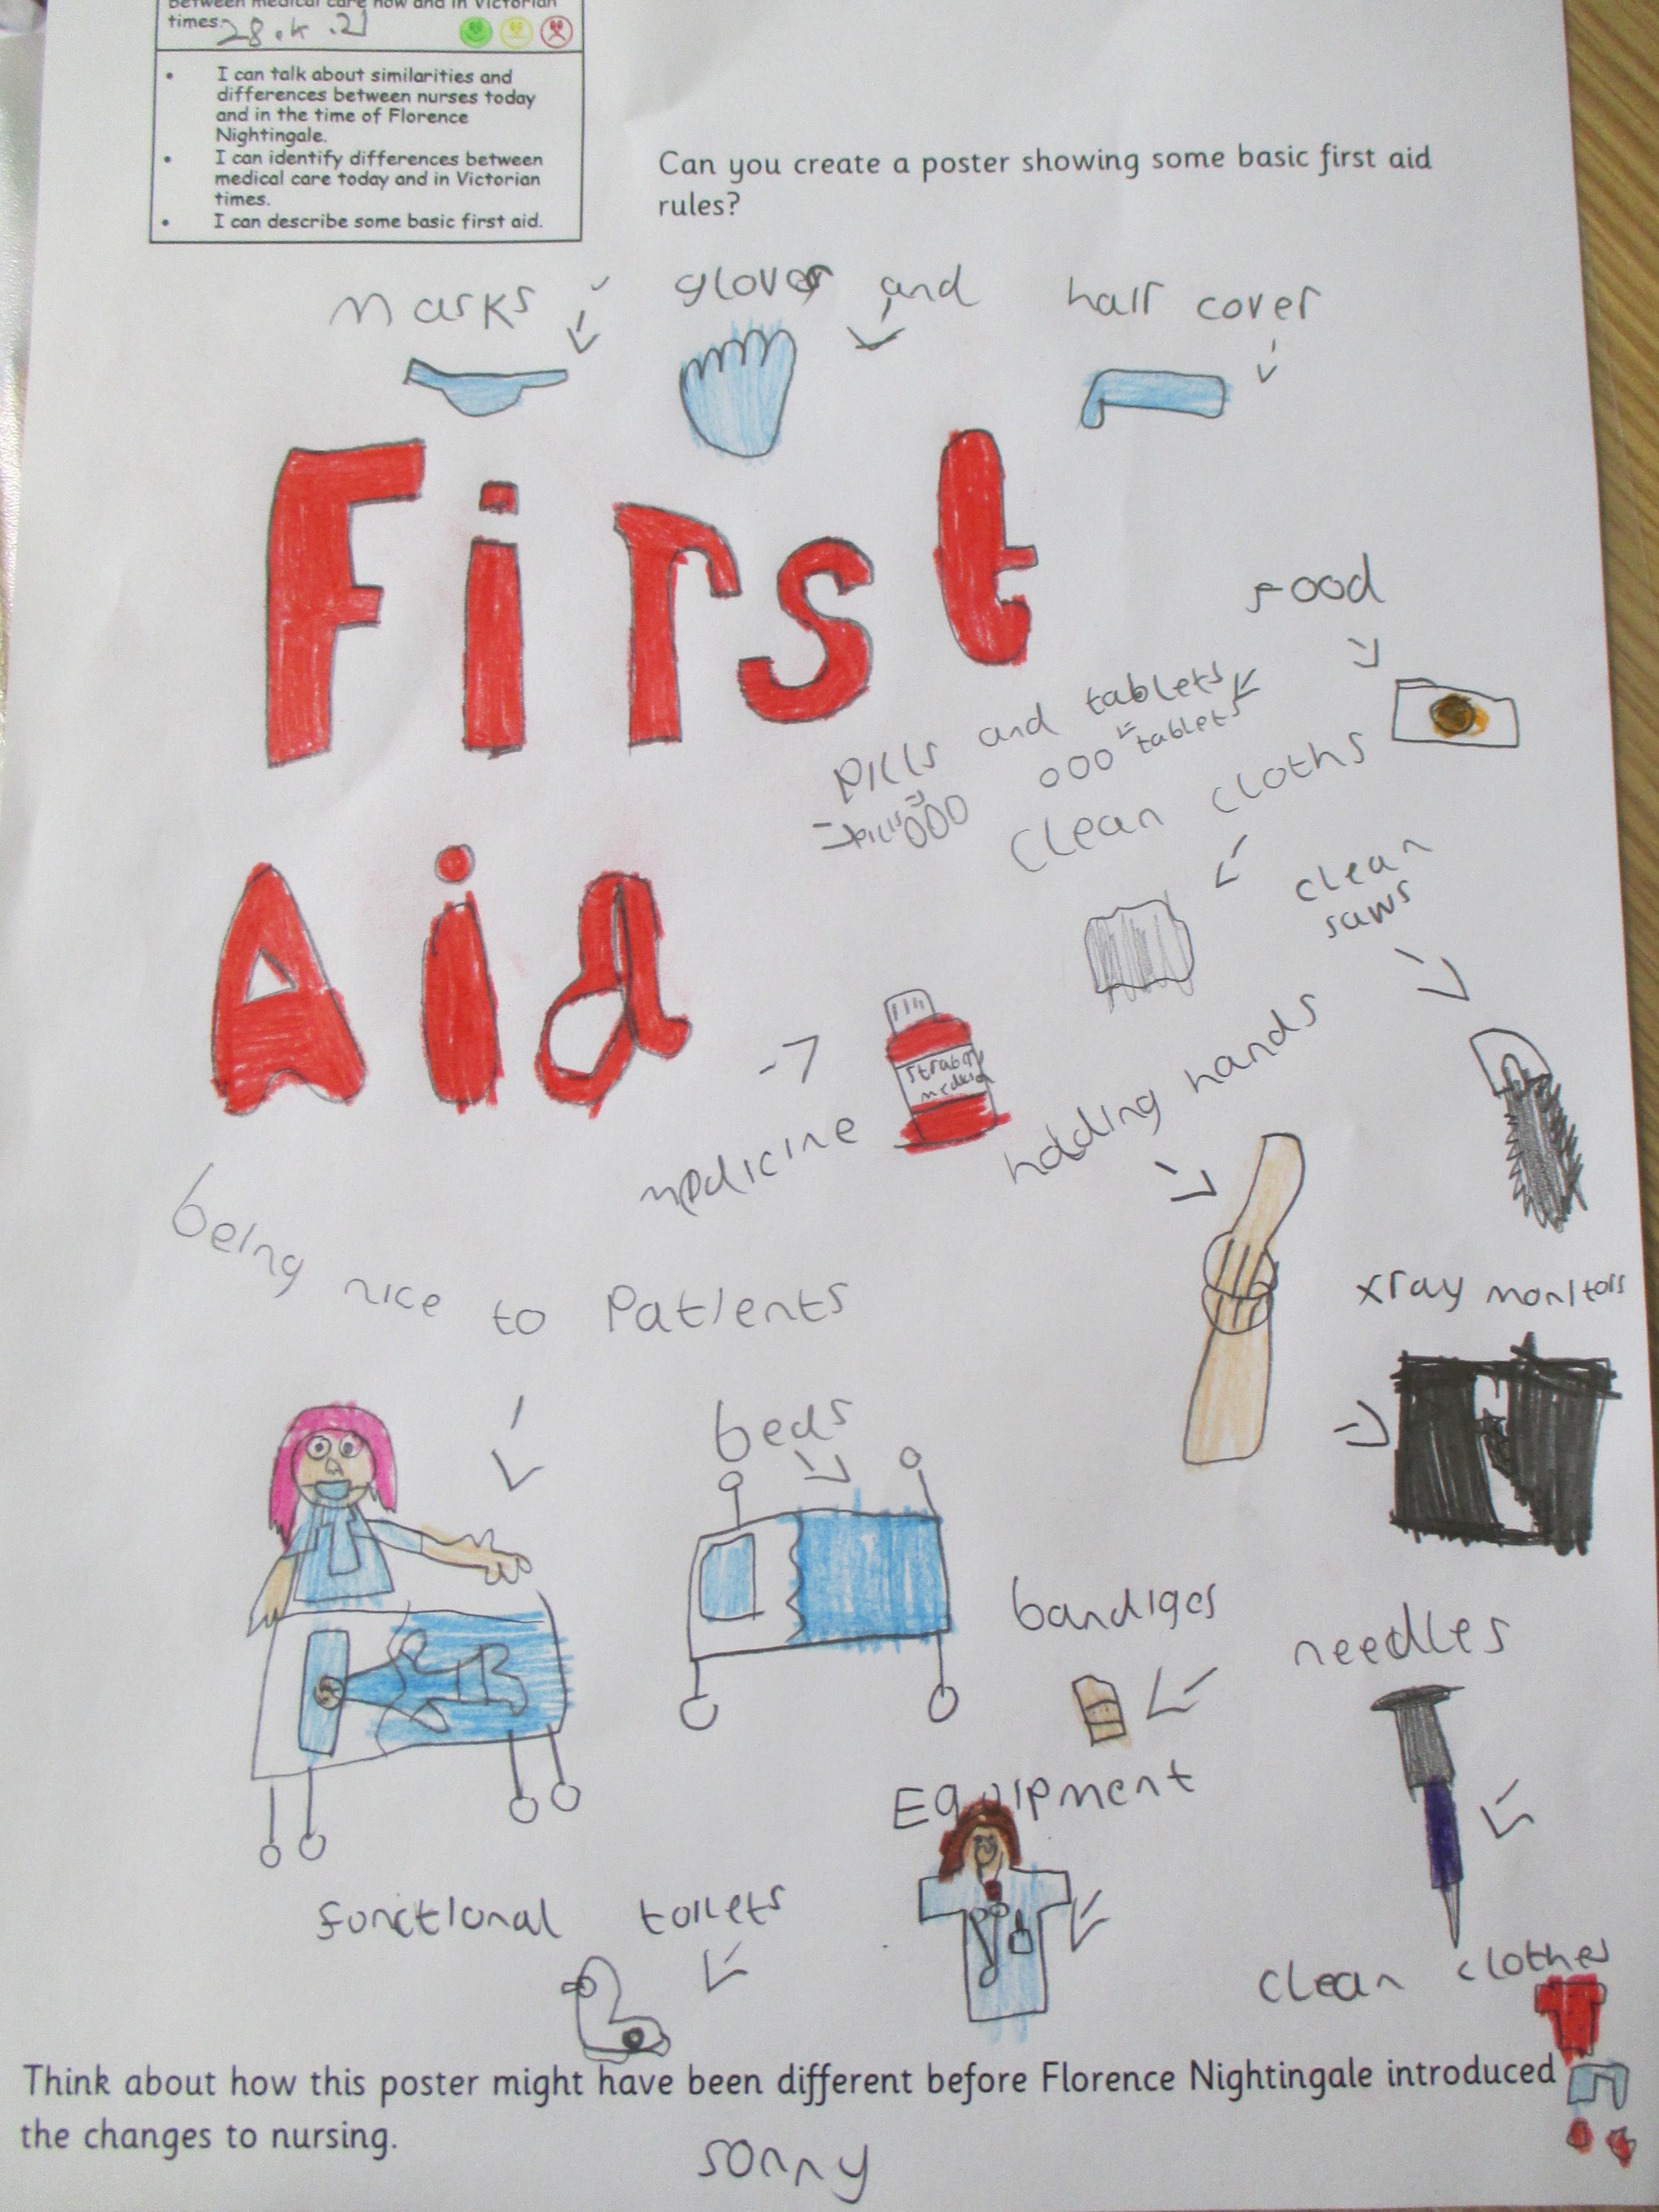 between medical care now and in Victorian
times.
28.4.21
• I can talk about similarities and
differences between nurses today
and in the time of Florence
Nightingale.
• I can identify differences between
medical care today and in Victorian
times.
• I can describe some basic first aid.
Can you create a poster showing some basic first aid
rules?
masks, gloves and hair cover
First
food
pills and tablets
pills
tablets
clean cloths
Aid
clean
saws
medicine
medicin
holding hands
being nice to Patients
xray monitors
beds
bandiges
needles
Equipment
functional toilets
clean clothes
Think about how this poster might have been different before Florence Nightingale introduced
the changes to nursing.
sonny